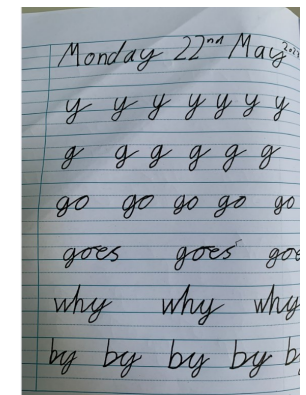 Monday 22nd May 2023
y y y y y y y
g g g g g g
go go go go go
goes goes goe
why why why
by by by by b